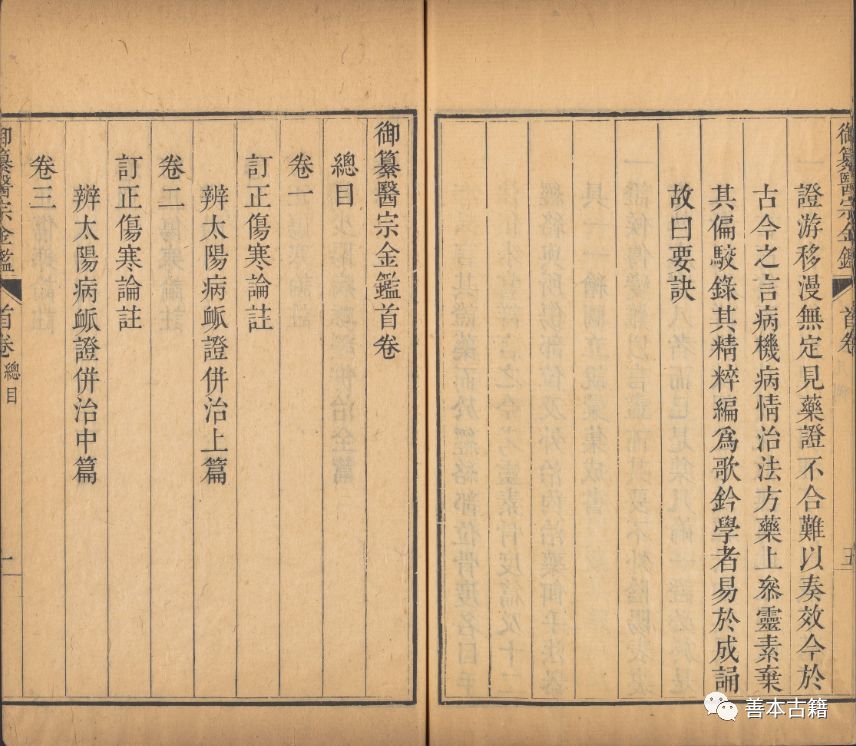 御纂醫宗金鑑
首卷
五
證游移漫無定見藥證不合難以奏效今於
古今之言病機病情治法方藥上叅靈素棄
其偏駮錄其精粹編爲歌鈐學者易於成誦
故曰要訣
御纂醫宗金鑑首卷
總目
卷一
訂正傷寒論註
辨太陽病脈證併治上篇
卷二
訂正傷寒論註
辨太陽病脈證併治中篇
卷三
御纂醫宗金鑑
首卷
總目
一
善本古籍